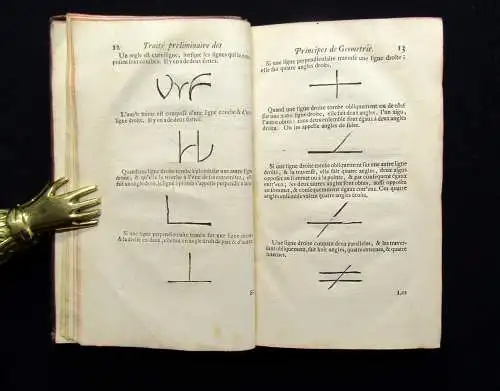 12 Traité préliminaire des
Un angle est curviligne, lorsque les lignes qui la com-
posent sont courbes. Il y en a de deux sortes.
L'angle mixte est composé d'une ligne courbe & d'une
ligne droite. Il y en a de deux sortes.
Quand une ligne droite tombe à plomb sur une autre ligne
droite, & qu'elle la touche à
fait un angle droit, la ligne à plomb s'appelle perpendiculaire
Si une ligne perpendiculaire tombe sur une ligne droite
& la divise en deux, elle fait un angle droit de part & d'autre
Principes de Geometrie. 13
Si une ligne perpendiculaire traverse une ligne droite;
elle fait quatre angles droits.
Quand une ligne droite tombe obliquement sur
une ligne droite, elle fait deux angles, l'un aigu,
l'autre obtus: tous deux ensemble sont égaux à deux angles
droits. On les appelle angles de suite.
Si une ligne droite tombe obliquement sur une autre ligne
droite, & la traverse, elle fait quatre angles, deux aigus
opposez au sommet ou à la pointe, & par conséquent égaux
entr'eux; les deux autres angles sont obtus, aussi
opposez au sommet, & par conséquent égaux entr'eux. Ces quatre
angles ensemble valent quatre angles droits.
Une ligne droite coupant deux paralleles, & les traver-
sant obliquement, fait huit angles, quatre externes, & quatre
internes.
Les